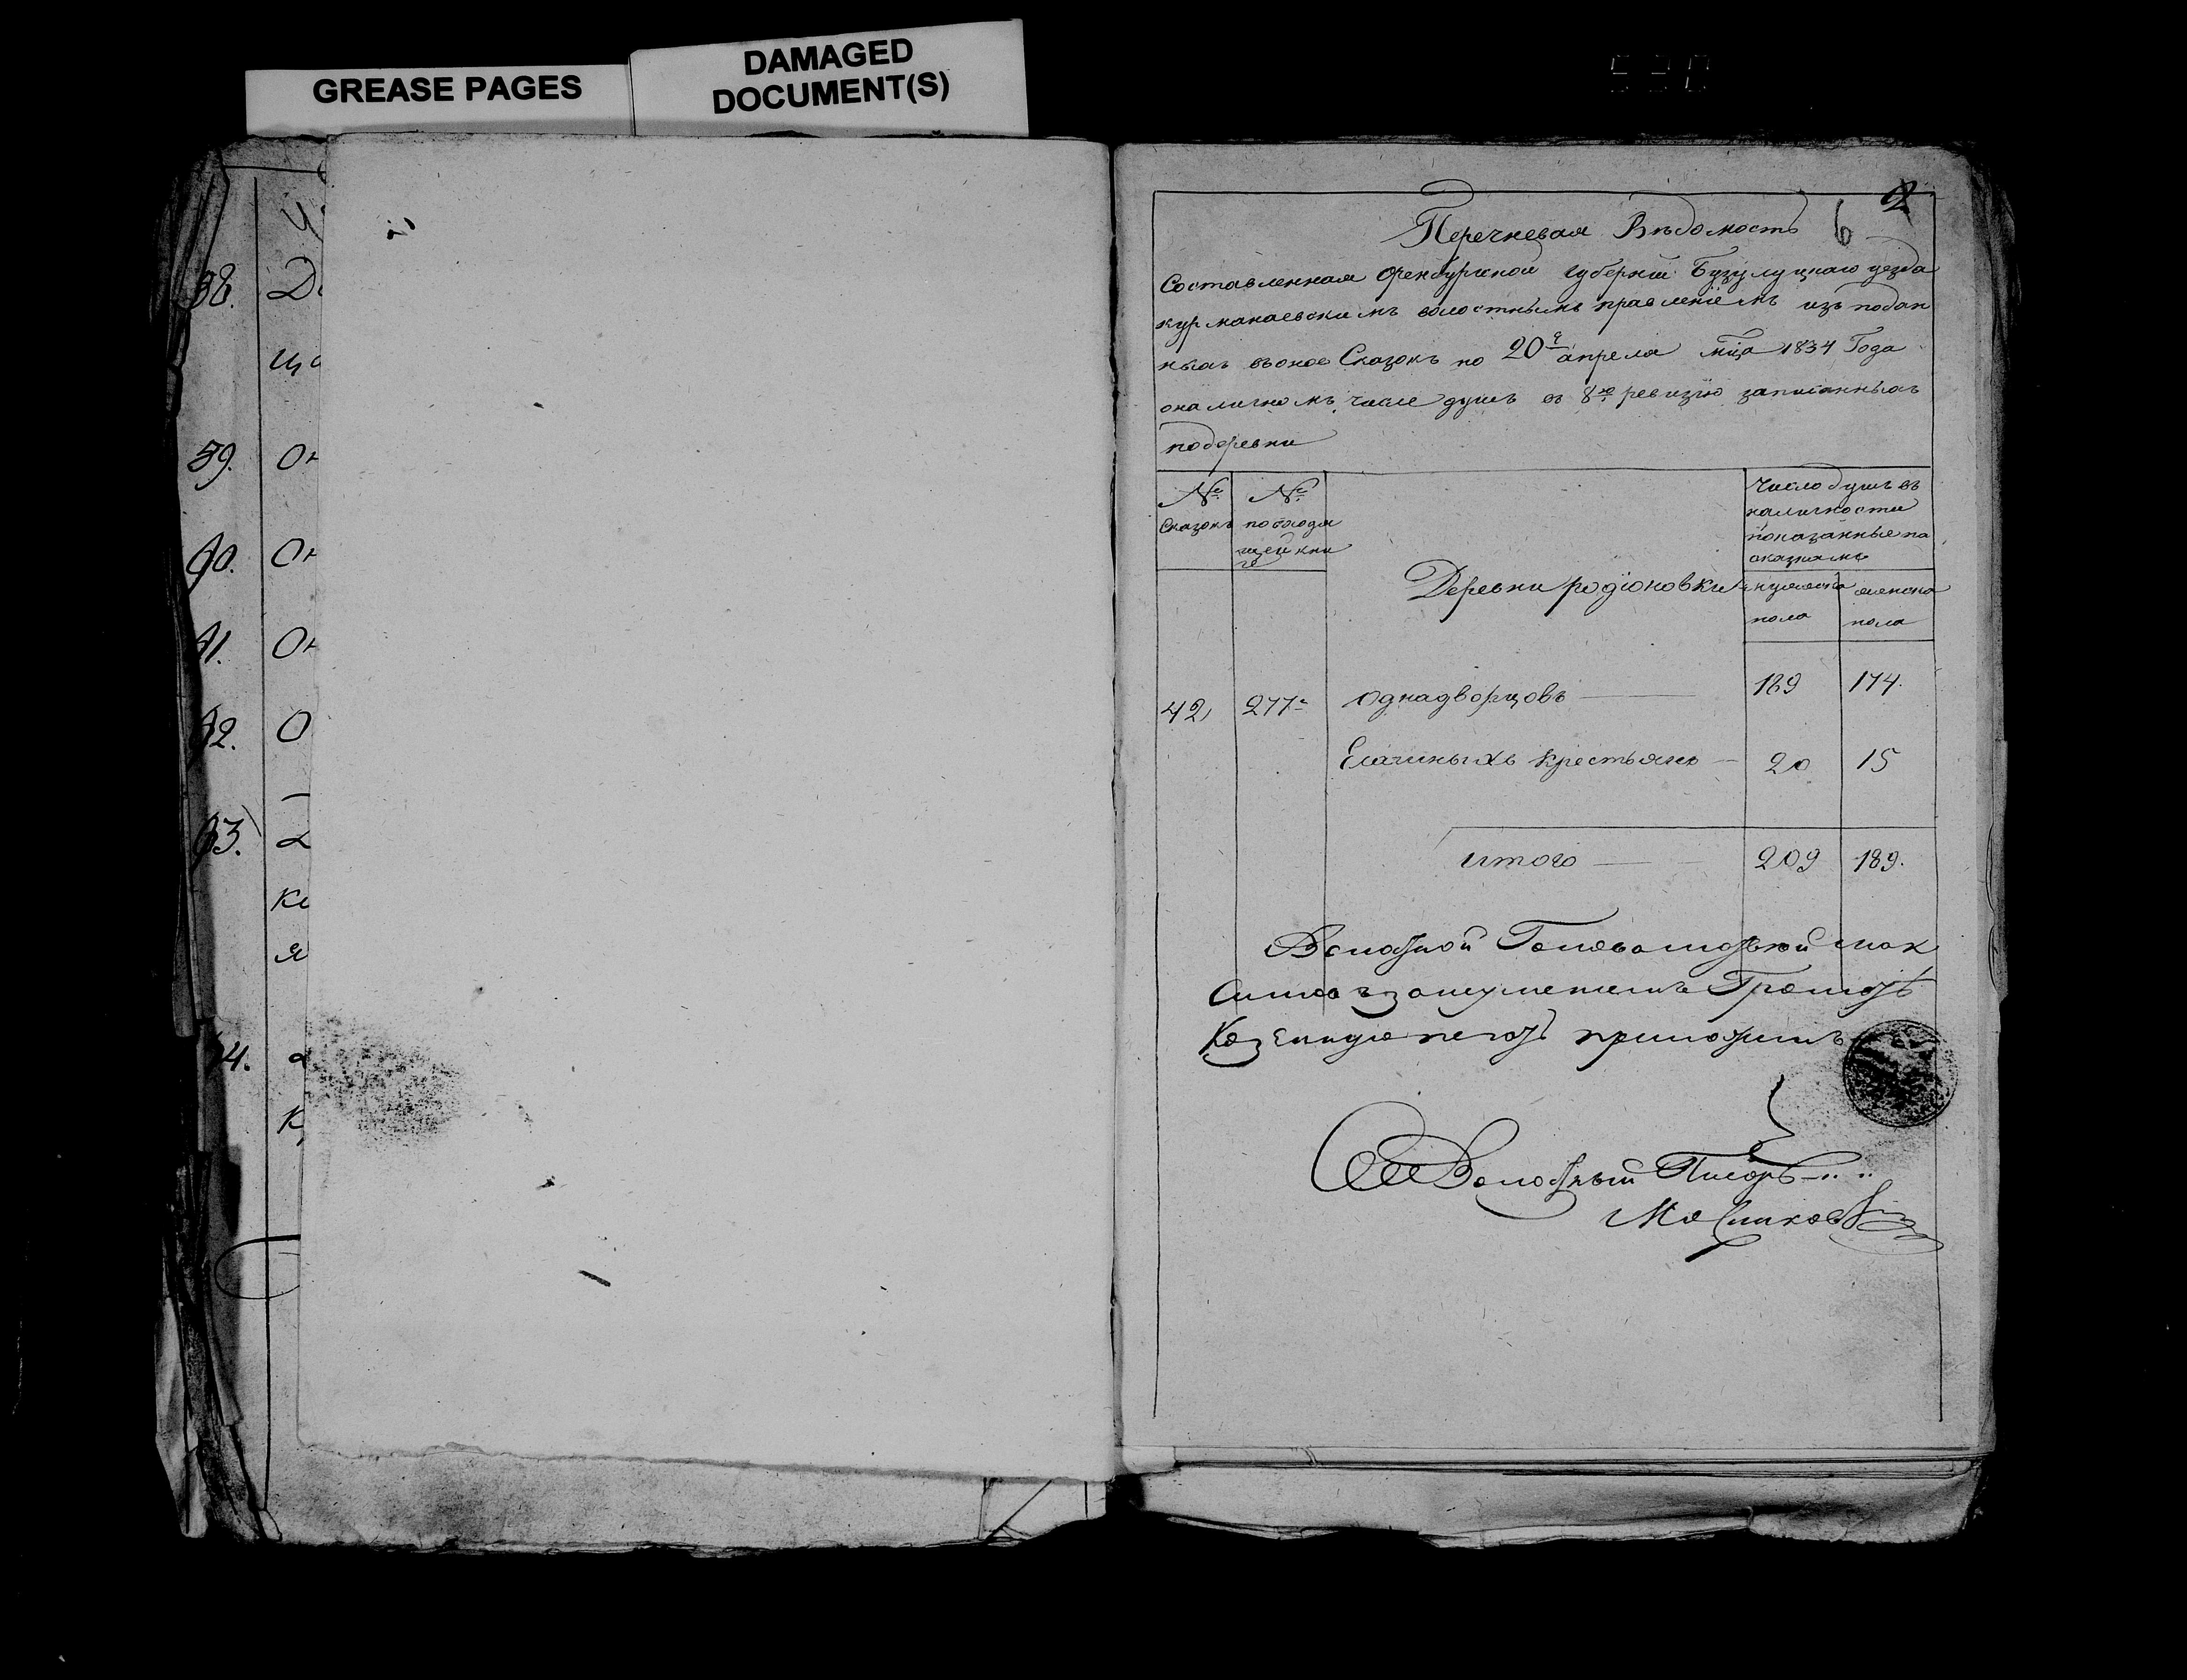 GREASE PAGES
DAMAGED
DOCUMENT(S)
38.
39.
40.
41.
42.
43.
44.
2
Перечневая Вѣдомость 6
Составленная Оренбурской губерніи Бузулуцкаго уезда
курманаевскимъ волостнымъ правленіемъ изъ подан
ныхъ въоное Сказокъ по 20е апреля мца 1834 Года
оналичномъ числе душъ въ 8ю ревизію записанныхъ
подеревни
№ Сказокъ
№ по входящей книге
Деревни родіоновки
Число душъ въ
наличности
показанные по
сказкамъ
мужеска пола
женска пола
42, 277. Однадворцовъ 189 174.
Ясашныхъ крестьянъ 20 15
итого 209 189.
Волостной Голова
Казенную печать приложилъ
Волостный Писарь